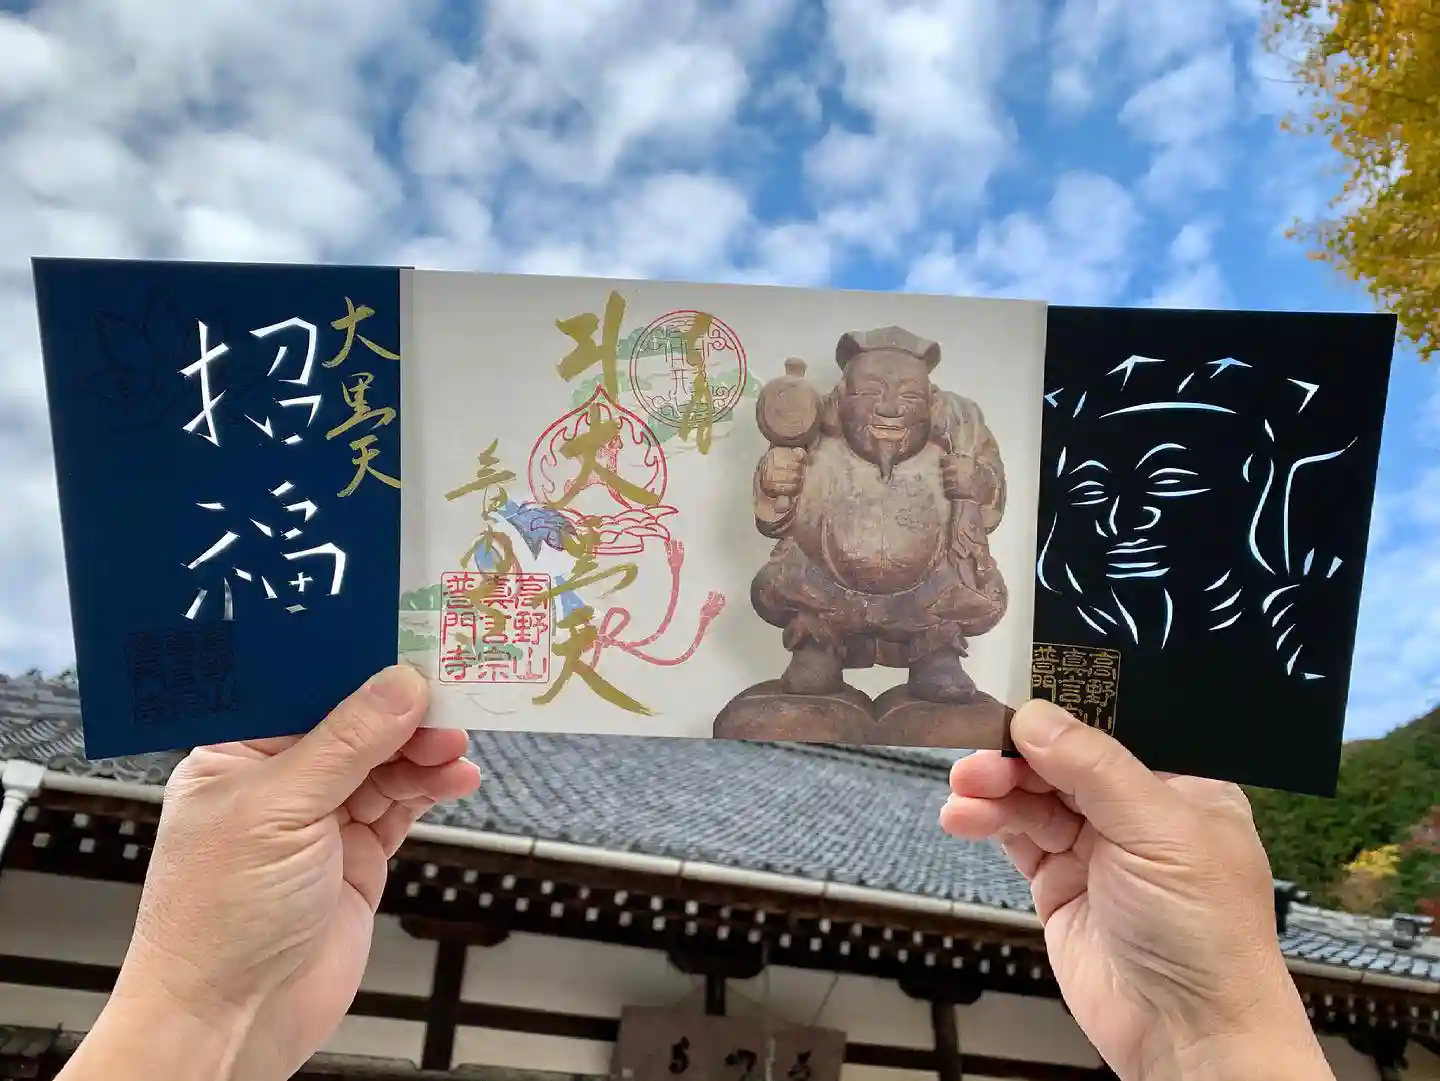 大黒天
招福
大黒天
普門寺
高野山
真言宗
普門寺
高野山
真言宗
普門